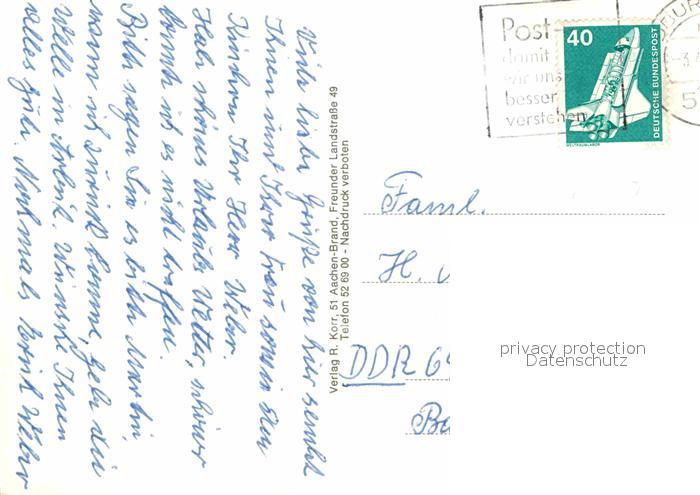 Viele liebe Grüße von hier sendet
Ihnen und Ihrer Frau sowie den
Kindern Ihr Herr Weber.
Habe schönes Urlaubs Wetter,
könnte es nicht treffen.
Bitte sagen Sie es bitte Martin,
wann ich zurück komme, gehe die
Welle in Arbeit. Wünsche Ihnen
alles gute. Nochmals Weber
Verlag R. Korr, 51 Aachen-Brand, Freunder Landstraße 49
Telefon 52 69 00 - Nachdruck verboten
Post-
damit
wir uns
besser
verstehen
40
DEUTSCHE BUNDESPOST
WELTRAUMLABOR
BUR
Faml.
H.
DDR 69
Ba
privacy protection
Datenschutz